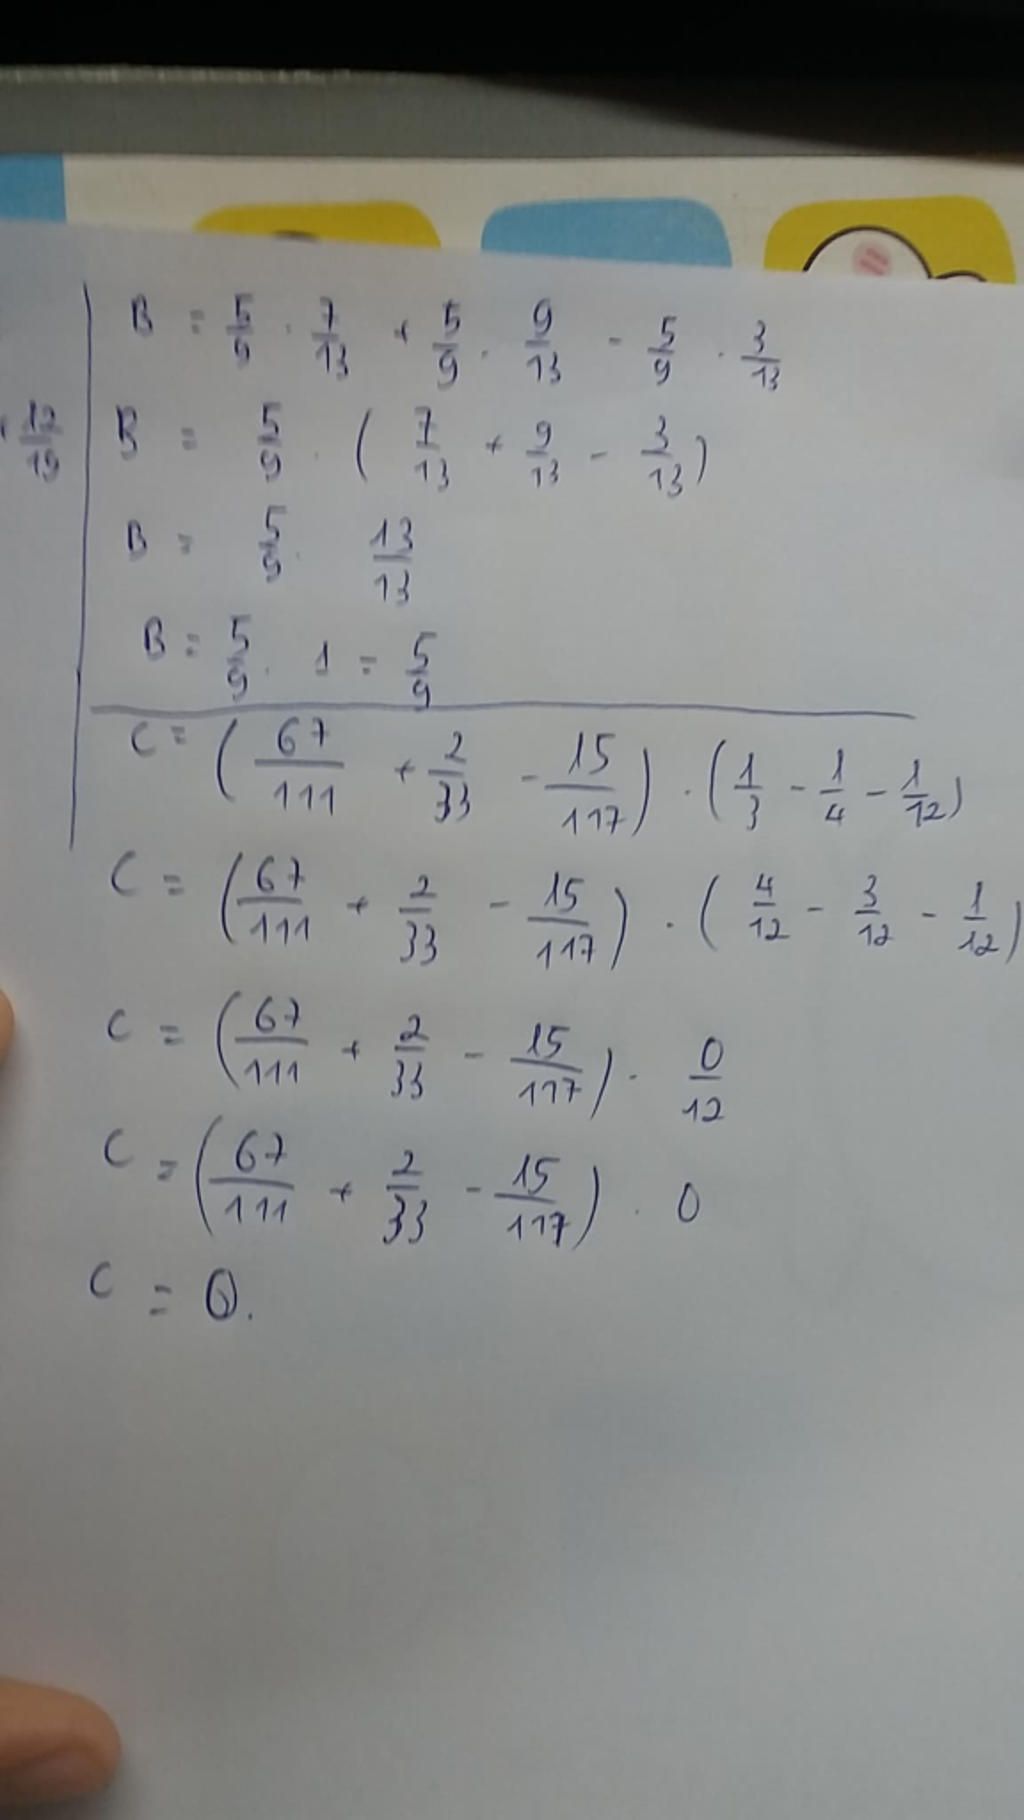 B = 5/9 . 7/13 + 5/9 . 9/13 - 5/9 . 3/13
B = 5/9 . ( 7/13 + 9/13 - 3/13 )
12/19
B = 5/9 . 13/13
B = 5/9 . 1 = 5/9
C = ( 67/111 + 2/33 - 15/117 ) . ( 1/3 - 1/4 - 1/12 )
C = ( 67/111 + 2/33 - 15/117 ) . ( 4/12 - 3/12 - 1/12 )
C = ( 67/111 + 2/33 - 15/117 ) . 0/12
C = ( 67/111 + 2/33 - 15/117 ) . 0
C = 0.